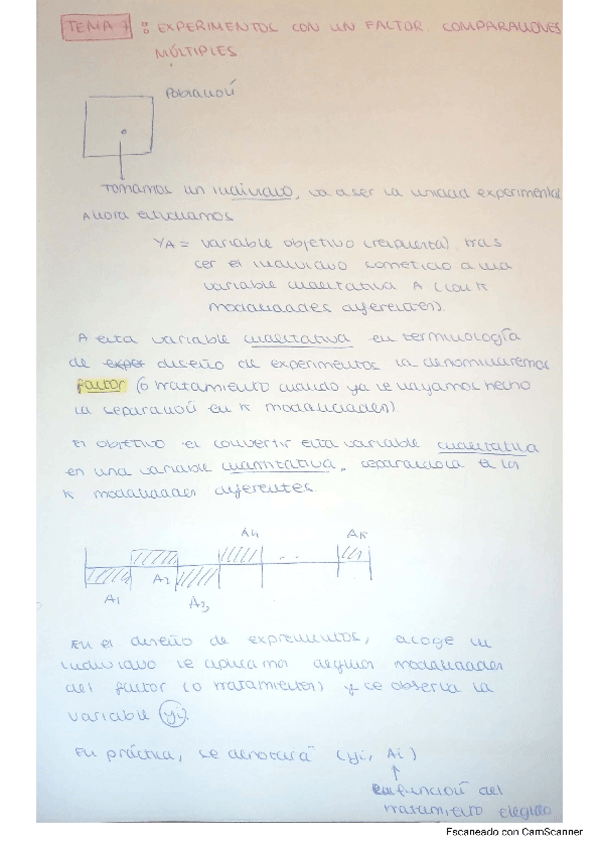 TEMA 7 : EXPERIMENTOS CON UN FACTOR. COMPARACIONES
MÚLTIPLES
Población
Tomamos un individuo, va a ser la unidad experimental
Ahora estudiamos
YA = variable objetivo (respuesta) tras
ser el individuo sometido a una
variable cualitativa A (con K
modalidades diferentes).
A esta variable cualitativa en terminología
de exper diseño de experimentos la denominaremos
factor (o tratamiento cuando ya le hayamos hecho
la separación en K modalidades)
El objetivo es convertir esta variable cualitativa
en una variable cuantitativa, separándola en los
K modalidades diferentes.
A4 AK
A2
A1 A3
En el diseño de expremientos, acoge un
individuo le aplicamos modalidades
del factor (o tratamientos) y se observa la
variable yi.
En práctica, se denotará (yi, Ai)
en función del
tratamiento elegido
Escaneado con CamScanner